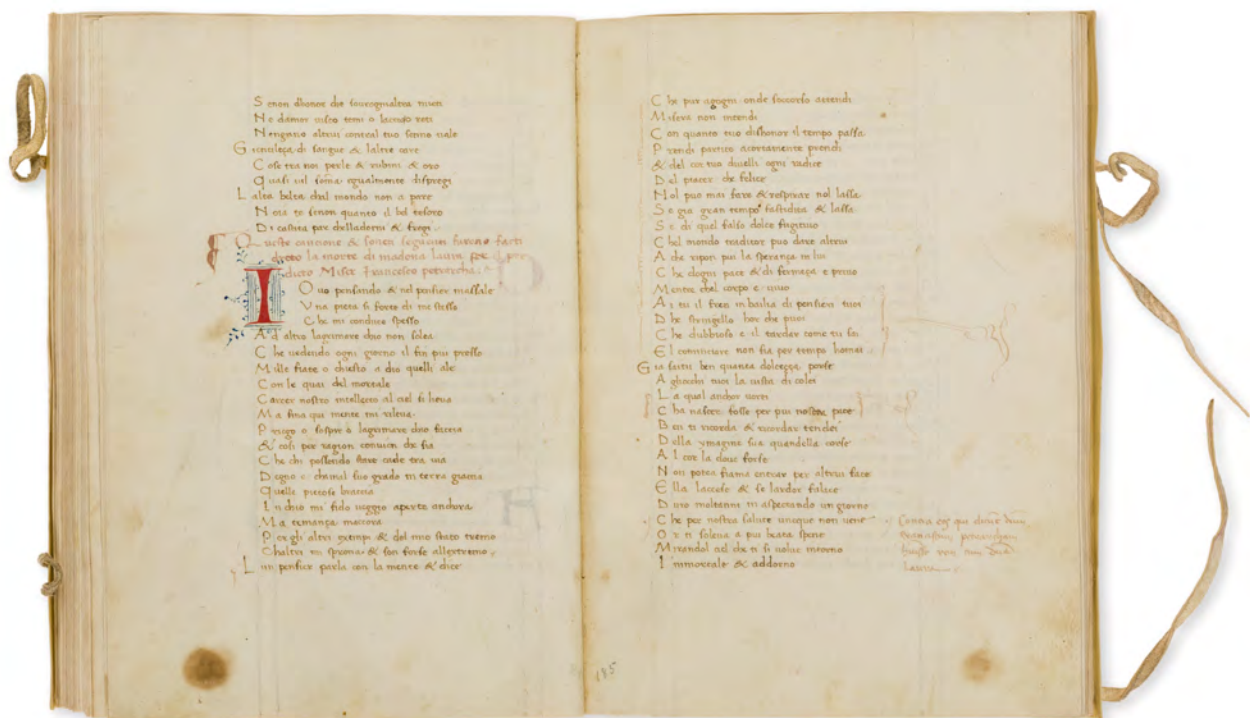 S enon dhonor che sourognialtra mieti
N e damor uisco temi o laccioso reti
N engano altrui contral tuo senno uale
G entileça di sangue & laltre care
C ose tra noi perle & rubini & oro
Q uasi uil soma egualmente dispregi
L alta belta chal mondo non a pare
N oia te senon quanto il bel tesoro
D i castita par chelladorni & fregi
Q ueste cancione & soneti seguenti furono facti
drieto la morte di madona laura per il pre
dicto Miser Francesco petrarcha
I O uo pensando & nel pensier massale
V na pieta si forte di me stesso
C he mi conduce spesso
A d altro lagrimare chio non solea
C he uedendo ogni giorno il fin piu presso
M ille fiate o chiesto a dio quelle ale
C on le quai del mortale
C arcer nostro intelletto al ciel si lieua
M a fina qui niente mi rileua
P riego o sospiro o lagrimare chio faccia
& cosi per ragion conuien che sia
C he chi possendo stare cade tra uia
D egno e che mal suo grado in terra giaccia
Q uelle pietose braccia
I n chio mi fido ueggio aperte anchora
M a temença maccora
P er gli altri exempi & del mio stato tremo
C haltri mi sprona & son forse allextremo
L un pensier parla con la mente & dice
C he pur agogni onde soccorso attendi
M isera non intendi
C on quanto tuo dishonor il tempo passa
P rendi partito acortamente prendi
& del cor tuo diuelli ogni radice
D el piacer che felice
N ol puo mai fare & respirar nol lassa
S e gia gran tempo fastidita & lassa
S e di quel falso dolce fugitiuo
C hel mondo traditor puo dare altrui
A che ripon piu la sperança in lui
C he dogni pace & di fermeça e priuo
M entre chel corpo e uiuo
A i tu il fren in bailia di pensieri tuoi
D he stringello hor che puoi
C he dubbioso e il tardar come tu sai
E l cominciare non fia per tempo homai
G ia saitu ben quanta dolceçça porse
A gliocchi tuoi la uista di colei
L a qual anchor uorrei
C ha nascer fosse per piu nostra pace
B en ti ricorda & ricordar tendei
D ella ymagine sua quandella corse
A l cor la doue forse
N on potea fiama entrar per altrui face
E lla laccese & se lardor fallace
D uro moltanni in aspectando un giorno
C he per nostra salute unque non uene
O r ti solleua a piu beata spene
M irandol ciel che ti si uolue intorno
I mmortale & addorno
Contra eos qui dicunt
petrarcham
laura
185